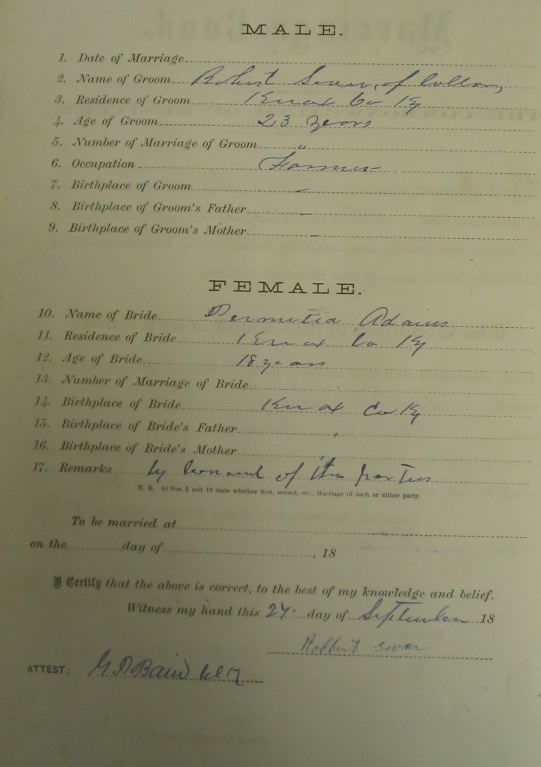 MALE.
1. Date of Marriage
2. Name of Groom Robert
3. Residence of Groom Knox Co Ky
4. Age of Groom 23 years
5. Number of Marriage of Groom "
6. Occupation Farmer
7. Birthplace of Groom
8. Birthplace of Groom's Father
9. Birthplace of Groom's Mother
FEMALE.
10. Name of Bride Adams
11. Residence of Bride Knox Co Ky
12. Age of Bride 18 years
13. Number of Marriage of Bride
14. Birthplace of Bride Knox Co Ky
15. Birthplace of Bride's Father
16. Birthplace of Bride's Mother
17. Remarks by consent of the parties
N. B. At Nos. 5 and 13 state whether first, second, etc., Marriage of each or either party.
To be married at
on the day of , 18
I Certify that the above is correct, to the best of my knowledge and belief.
Witness my hand this 27 day of September 18
Robbert
ATTEST: G D Baird clk